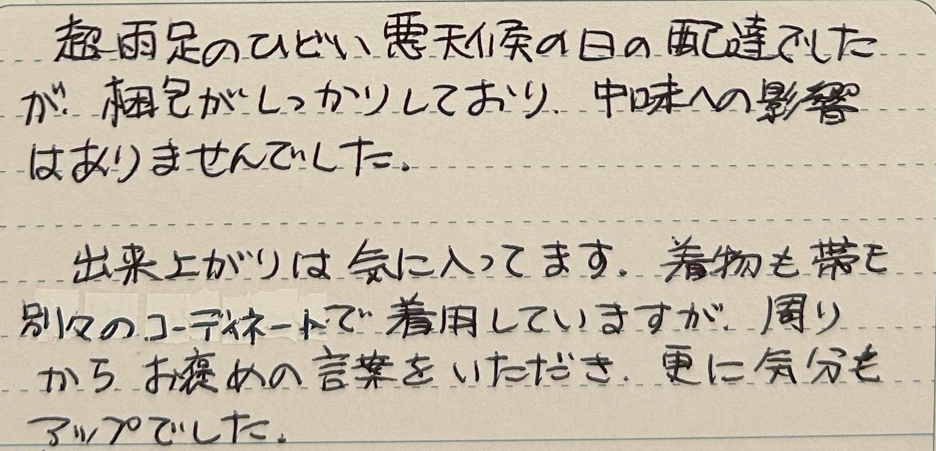 超雨足のひどい悪天候の日の配達でした
が、梱包がしっかりしており、中味への影響
はありませんでした。
出来上がりは気に入ってます。着物も帯も
別々のコーディネートで着用していますが、周り
から お褒めの言葉をいただき、更に気分も
アップでした。